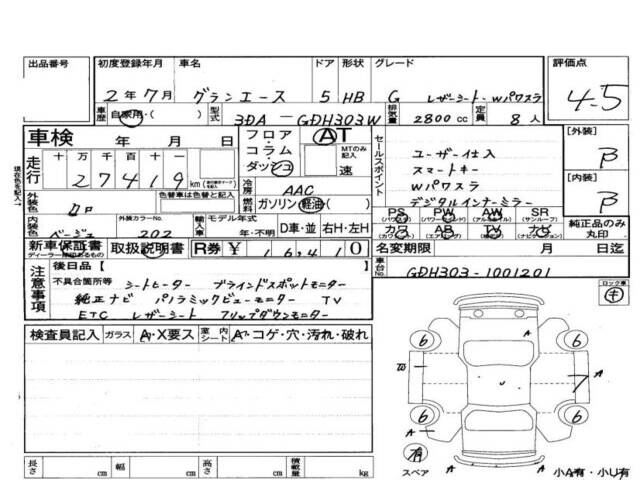 出品番号 初度登録年月 車名 ドア 形状 グレード 評価点
2年7月 グランエース 5 HB G レザーシート・Wパワスラ 4.5
車歴 自家用・( ) 型式 3DA-GDH303W 排気量 2800cc 定員 8人
車検 年 月 日 フロア・コラム・ダッシュ AT MTのみ記入 速
走行 十 万 千 百 十 一
27419 km
セールスポイント
ユーザー仕入
スマートキー
Wパワスラ
デジタルインナーミラー
[外装] B
[内装] B
冷房 AAC
燃料 ガソリン・軽油・( )
外装色 クロ 色替車は色替と記入
外装カラーNo. 202
内装色 ベージュ
輸入車 モデル年式 年・不明 D車・並 右H・左H
PS PW AW SR
(パワステ) (パワーウィンド) (アルミホイル) (サンルーフ)
カワ AB TV ナビ
(カワシート) (エアバッグ) (ナビゲーション)
純正品のみ丸印
新車保証書 取扱説明書 R券 ¥ 16,410
ディーラー捺印あるもの
名変期限 月 日迄
車台No. GDH303-1001201
注意事項
後日品【 】
不具合箇所等 シートヒーター ブラインドスポットモニター
純正ナビ パノラミックビューモニター TV
ETC レザーシート フリップダウンモニター
検査員記入 ガラス A・X要ス 室内シート A・コゲ・穴・汚れ・破れ
ロック車 キ
6 6
W A
A
6 6
A
有
スペア
A
小A有・小U有
長さ cm 幅 cm 高さ cm 積載量 kg
現在色を記入→